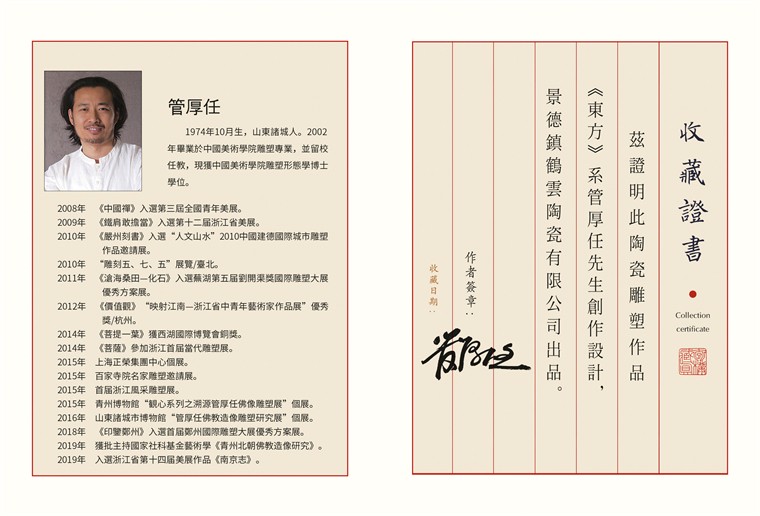 管厚任
1974年10月生，山東諸城人。2002
年畢業於中國美術學院雕塑專業，並留校
任教，現獲中國美術學院雕塑形態學博士
學位。
2008年 《中國禪》入選第三屆全國青年美展。
2009年 《鐵肩敢擔當》入選第十二届浙江省美展。
2010年 《嚴州刻書》入選“人文山水”2010中國建德國際城市雕塑
作品邀請展。
2010年 “雕刻五、七、五”展覽/臺北。
2011年 《滄海桑田—化石》入選蕪湖第五届劉開渠獎國際雕塑大展
優秀方案展。
2012年 《價值觀》“映射江南—浙江省中青年藝術家作品展”優秀
獎/杭州。
2014年 《菩提一葉》獲西湖國際博覽會銅獎。
2014年 《菩薩》參加浙江首届當代雕塑展。
2015年 上海正榮集團中心個展。
2015年 百家寺院名家雕塑邀請展。
2015年 首届浙江風采雕塑展。
2015年 青州博物館“観心系列之溯源管厚任佛像雕塑展”個展。
2016年 山東諸城市博物館“管厚任佛教造像雕塑研究展”個展。
2018年 《印鑒鄭州》入選首届鄭州國際雕塑大展優秀方案展。
2019年 獲批主持國家社科基金藝術學《青州北朝佛教造像研究》。
2019年 入選浙江省第十四届美展作品《南京志》。
收藏證書
Collection
certificate
茲證明此陶瓷雕塑作品
《東方》系管厚任先生創作設計，
景德鎮鶴雲陶瓷有限公司出品。
作者簽章：
管厚任
收藏日期：